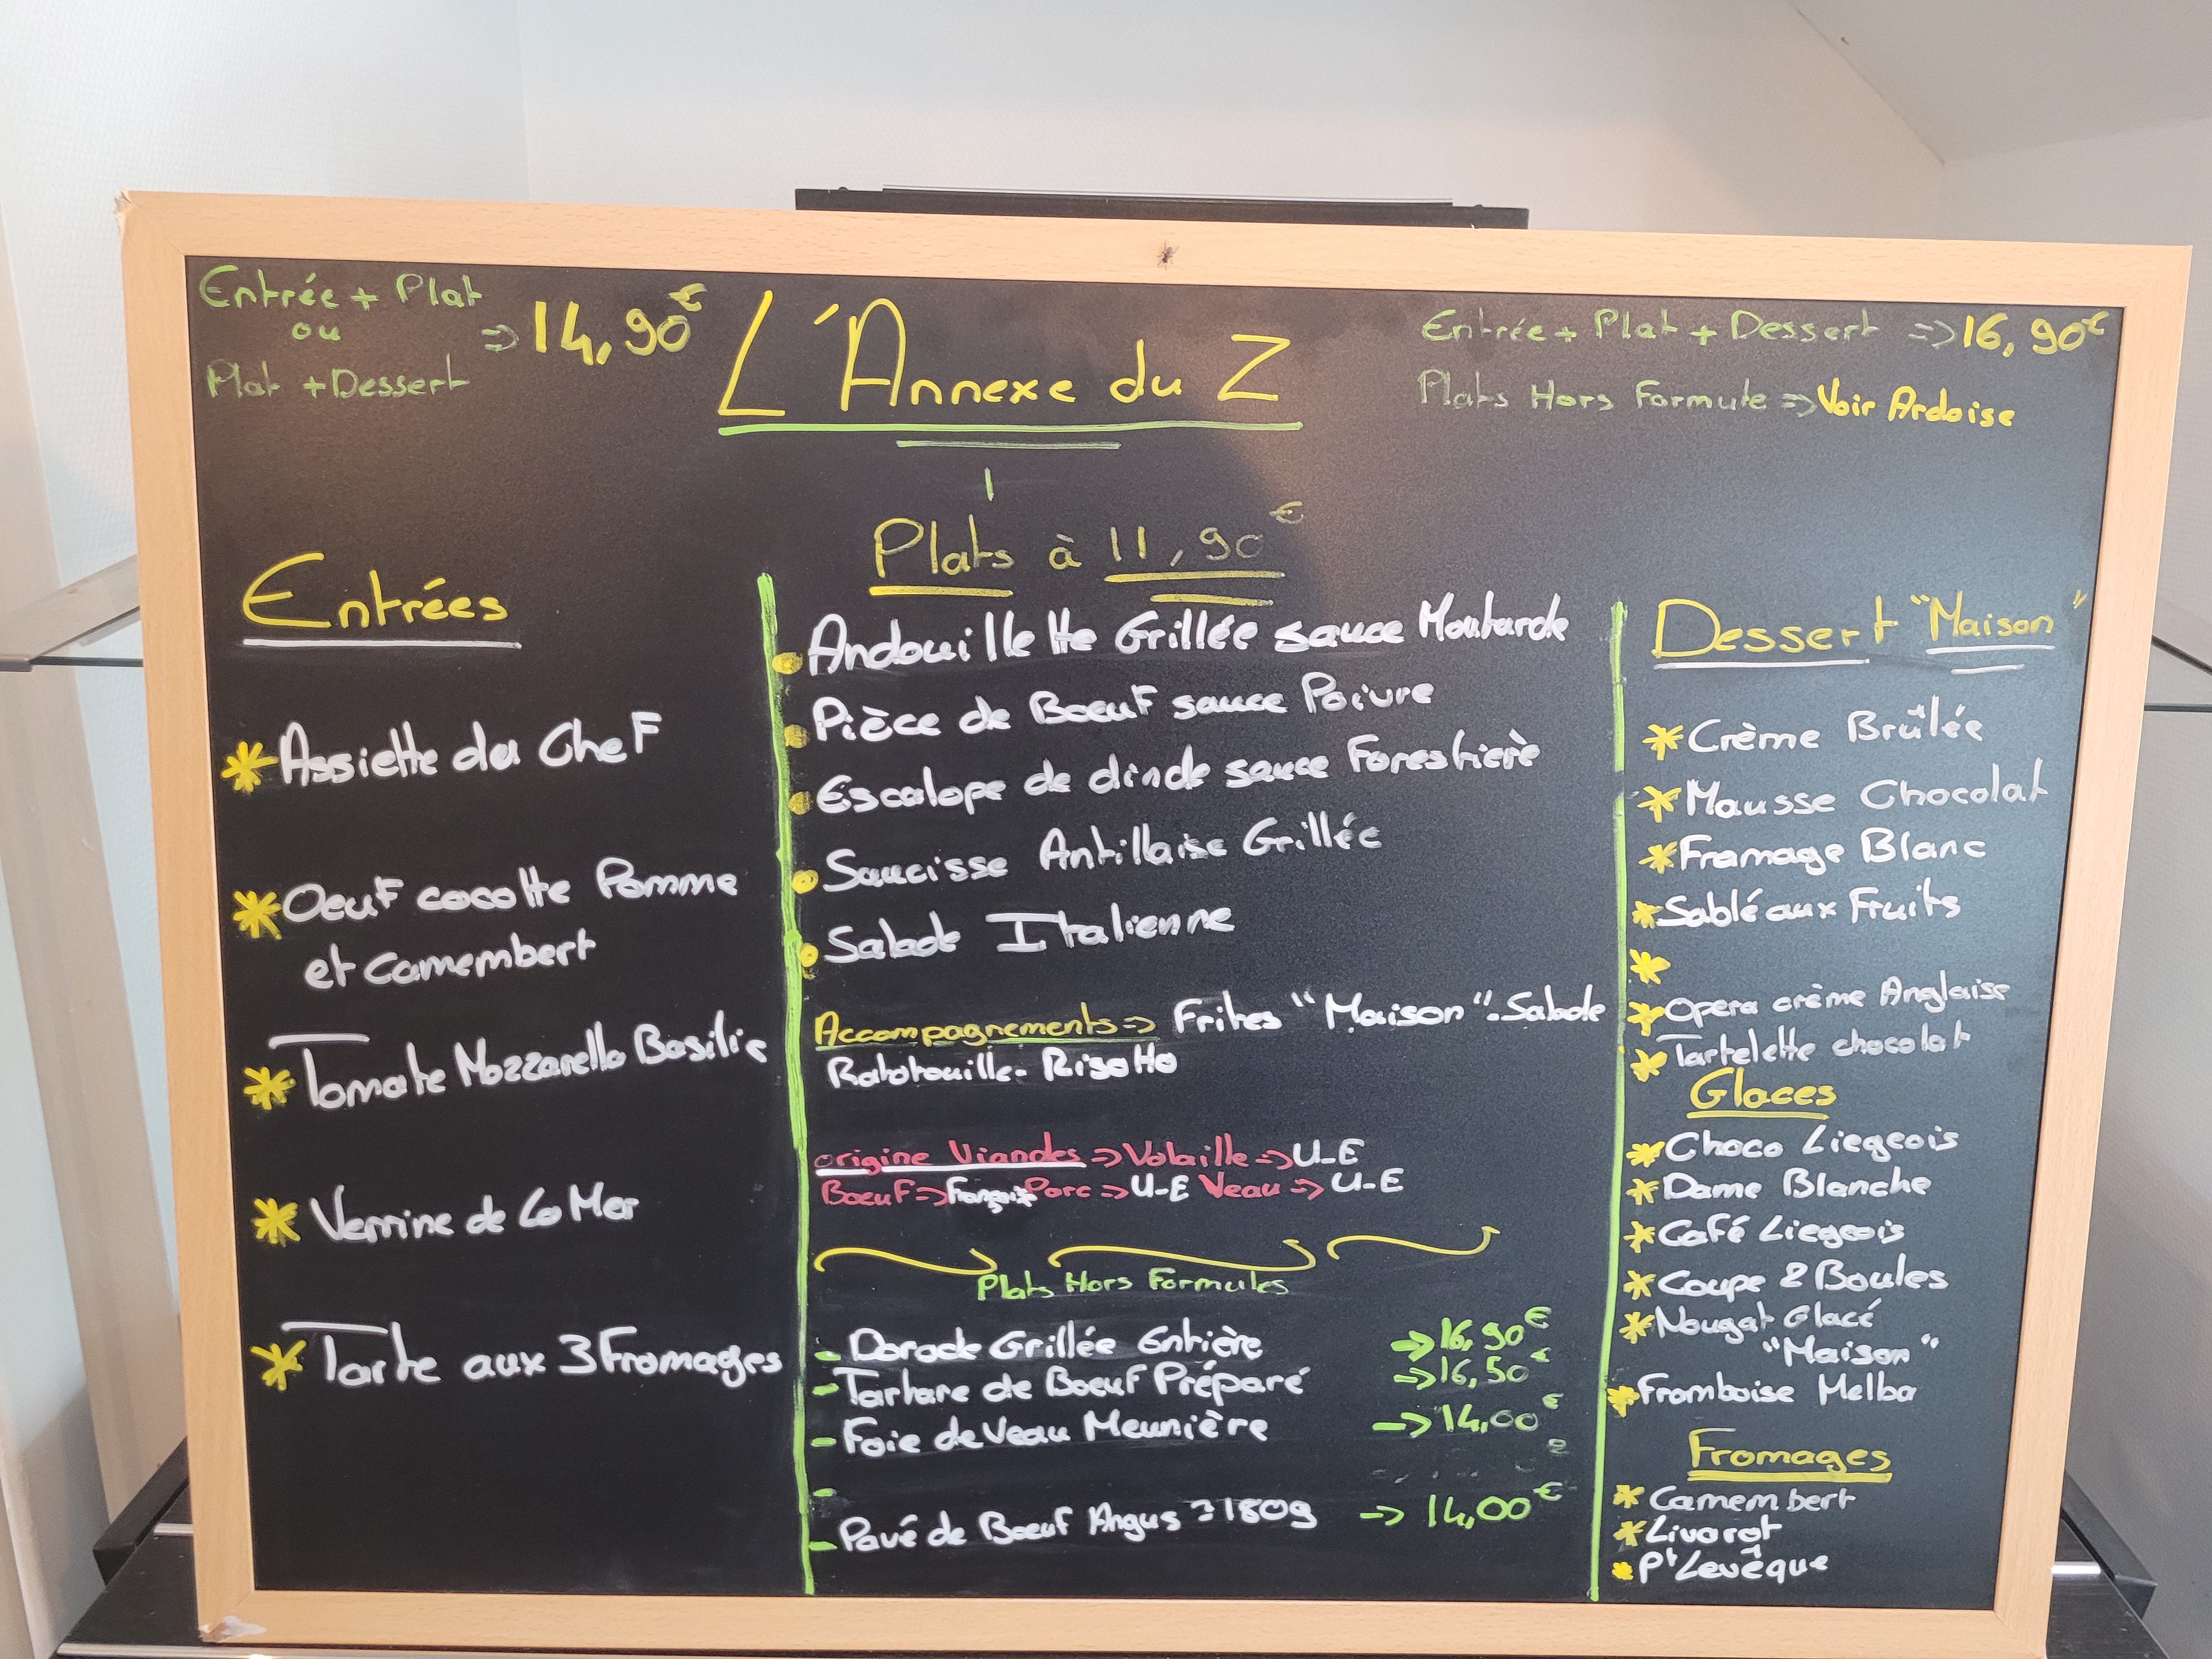 Entrée + Plat
ou
Plat + Dessert
=> 14,90€
L'Annexe du Z
Entrée + Plat + Dessert => 16,90€
Plats Hors Formule => Voir Ardoise
Entrées
* Assiette du Chef
* Oeuf cocotte Pomme
et camembert
* Tomate Mozzarella Basilic
* Verrine de La Mer
* Tarte aux 3 Fromages
Plats à 11,90€
Andouillette Grillée sauce Moutarde
Pièce de Boeuf sauce Poivre
Escalope de dinde sauce Forestière
Saucisse Antillaise Grillée
Salade Italienne
Accompagnements => Frites "Maison". Salade
Ratatouille - Risotto
origine Viandes => Volaille => U-E
Boeuf => Français Porc => U-E Veau => U-E
Plats Hors Formules
- Dorade Grillée Entière -> 16,90€
- Tartare de Boeuf Préparé => 16,50€
- Foie de Veau Meunière -> 14,00€
-
- Pavé de Boeuf Angus ≃ 180g -> 14,00€
Dessert "Maison"
* Crème Brûlée
* Mousse Chocolat
* Fromage Blanc
* Sablé aux Fruits
*
* Opera crème Anglaise
* Tartelette chocolat
Glaces
* Choco Liegeois
* Dame Blanche
* Café Liegeois
* Coupe 2 Boules
* Nougat Glacé
"Maison"
* Framboise Melba
Fromages
* Camembert
* Livarot
* Pt Levêque